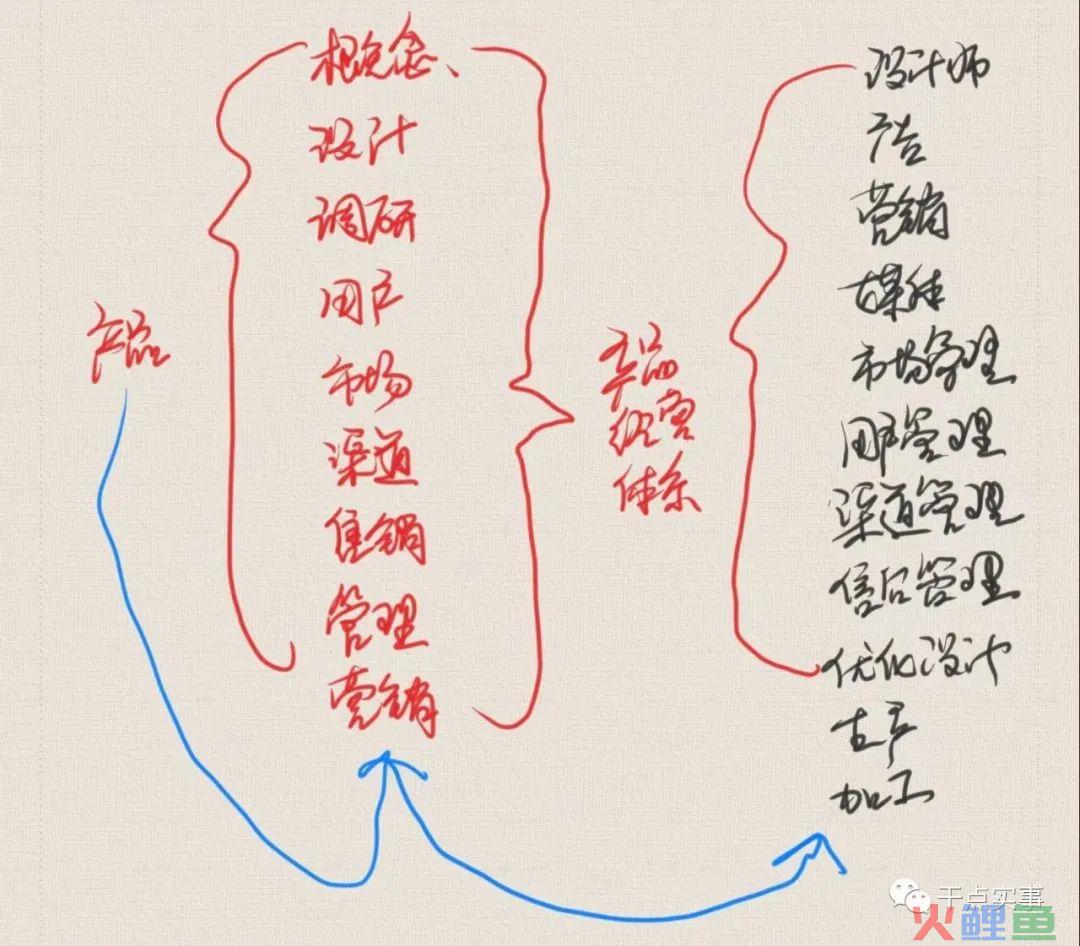 产品
概念、
设计
调研
用户
市场
渠道
售销
管理
营销
产品
经营
体系
设计师
广告
营销
媒体
市场管理
用户管理
渠道管理
售后管理
优化设计
生产
加工
干点实事
火鲤鱼